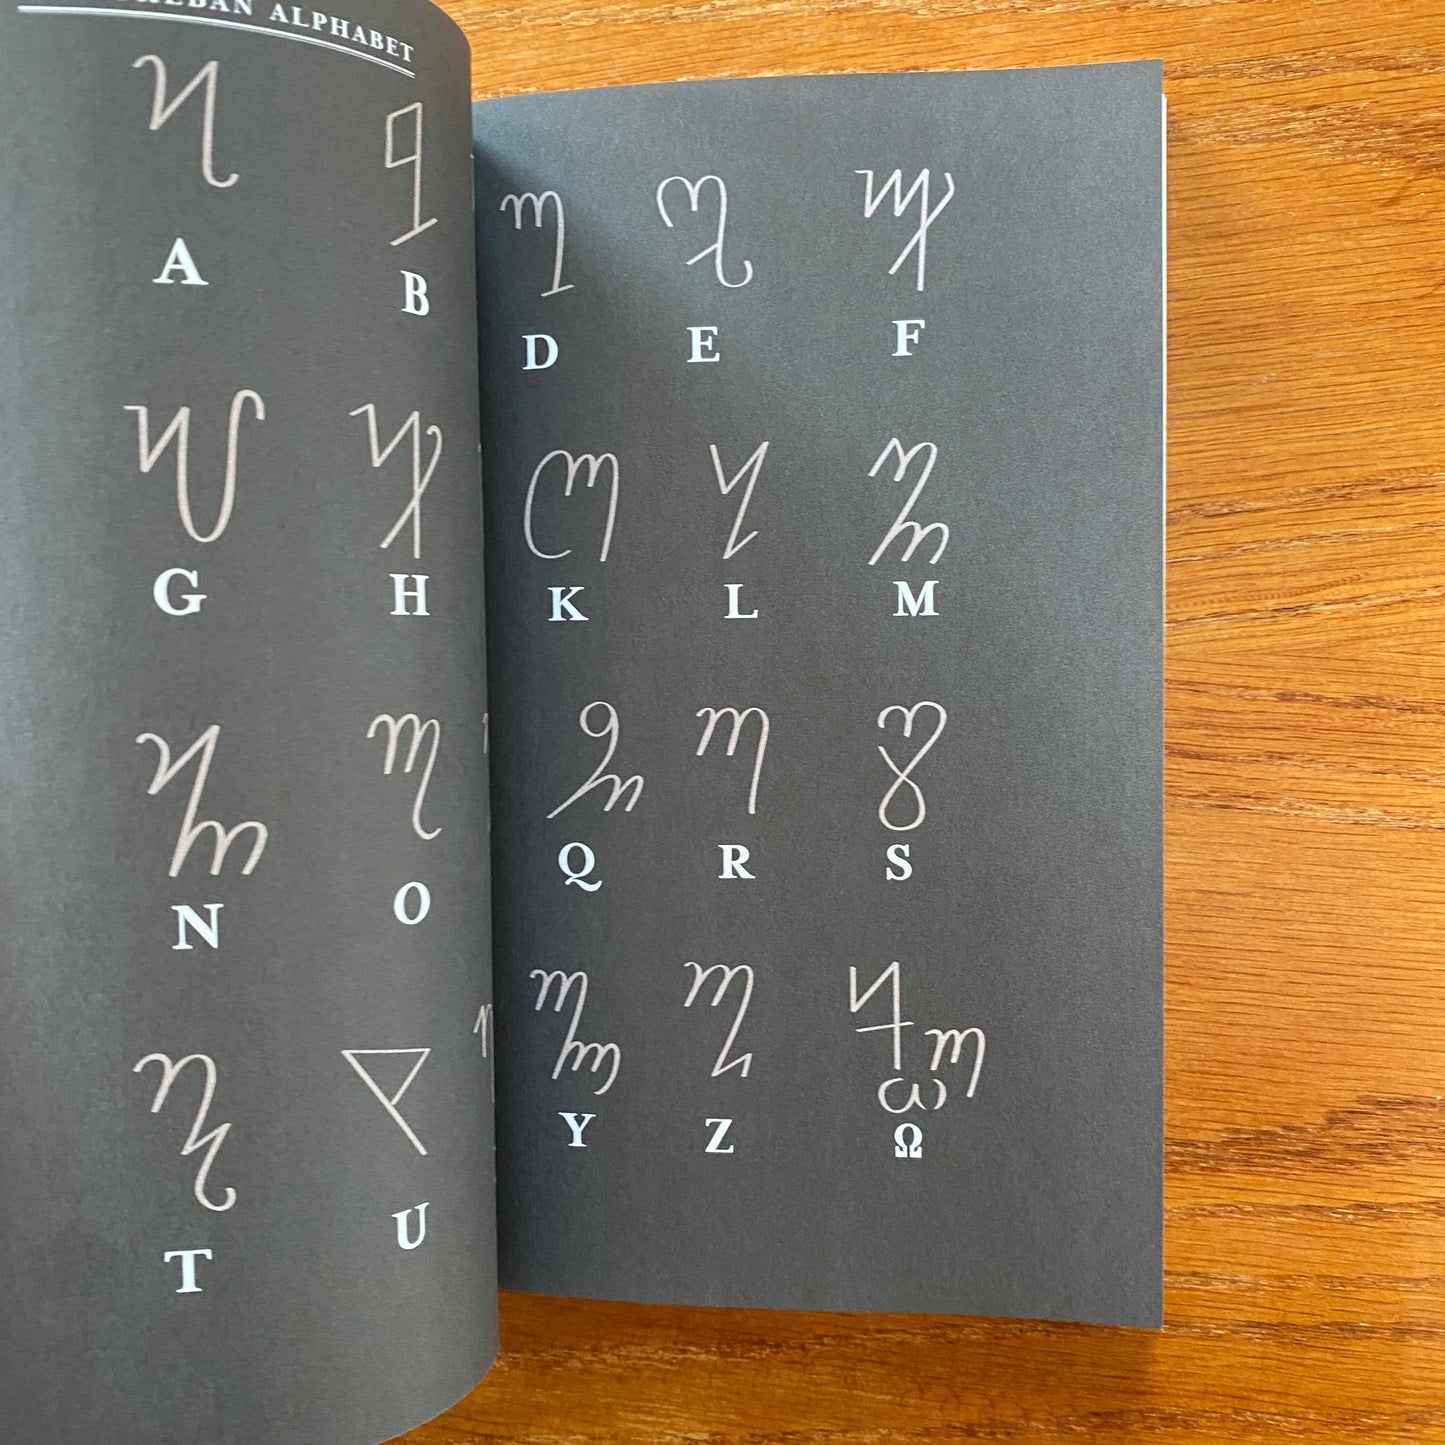 ALPHABET
A B
G H
N O
T U
D E F
K L M
Q R S
Y Z Ω